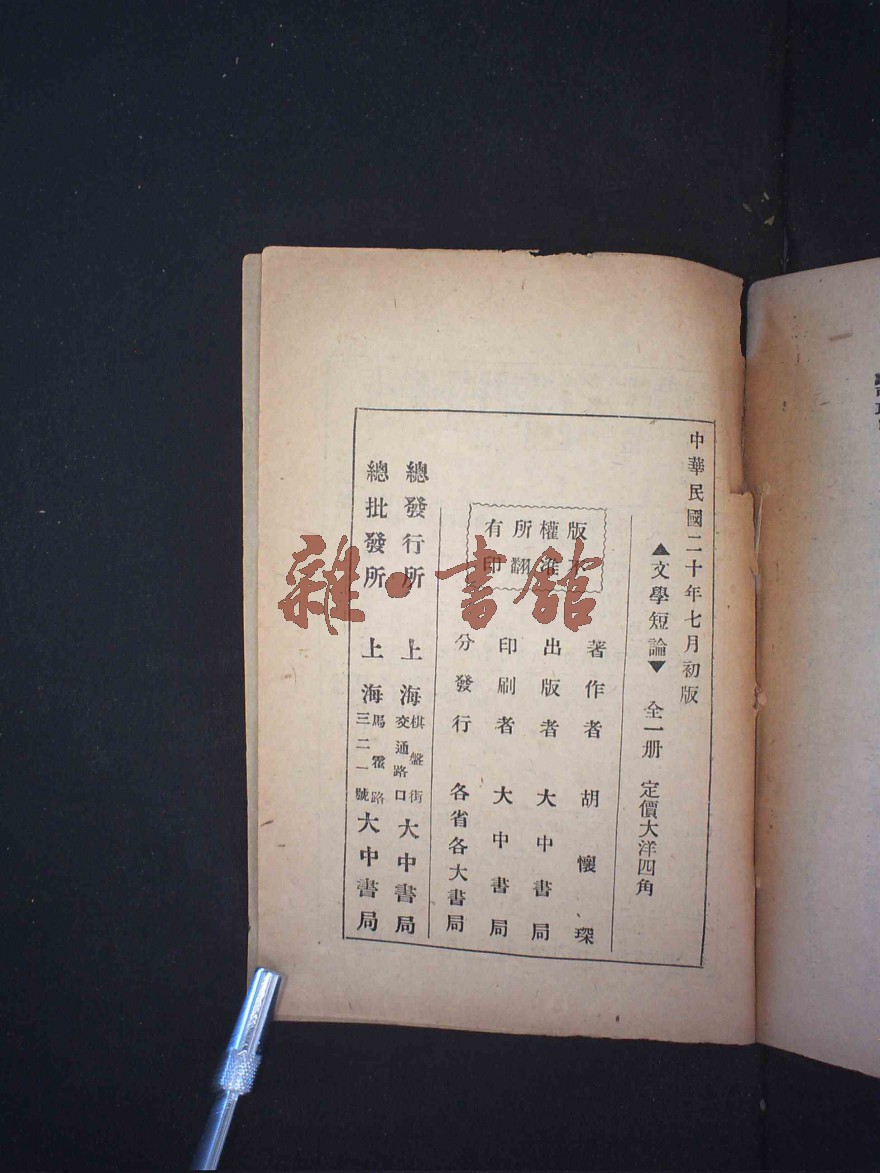 中華民國二十年七月初版
▲文學短論▼ 全一册 定價大洋四角
版權所有
不准翻印
著作者 胡懷琛
出版者 大中書局
印刷者 大中書局
分發行 各省各大書局
總發行所 上海棋盤街交通路口大中書局
總批發所 上海馬霍路三二一號大中書局
雜·書館